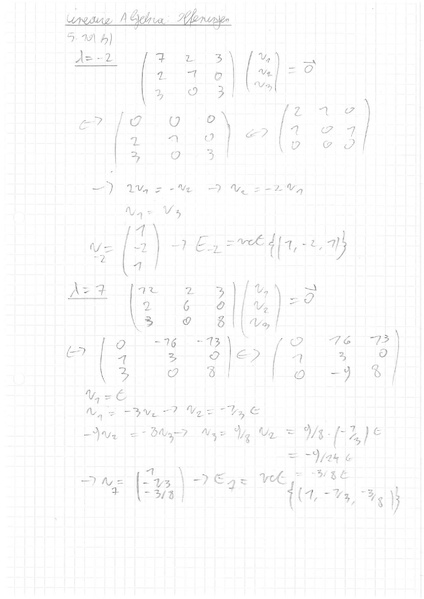 Lineare Algebra
5.21 b)
λ = -2 (7 2 3; 2 1 0; 3 0 3) (v₁; v₂; v₃) = 0⃗
⇔ (0 0 0; 2 1 0; 3 0 3) ⇔ (2 1 0; 1 0 1; 0 0 0)
→ 2v₁ = -v₂ → v₂ = -2v₁
v₁ = v₃
v₋₂ = (1; -2; 1) → E₋₂ = vct {(1, -2, 1)}
λ = 7 (12 2 3; 2 6 0; 3 0 8) (v₁; v₂; v₃) = 0⃗
⇔ (0 -16 -13; 1 3 0; 3 0 8) ⇔ (0 16 13; 1 3 0; 0 -9 8)
v₁ = t
v₁ = -3v₂ → v₂ = -1/3 t
-9v₂ = -8v₃ → v₃ = 9/8 v₂ = 9/8 · (-1/3) t
= -9/24 t
= -3/8 t
→ v₇ = (1; -1/3; -3/8) → E₇ = vct {(1, -1/3, -3/8)}